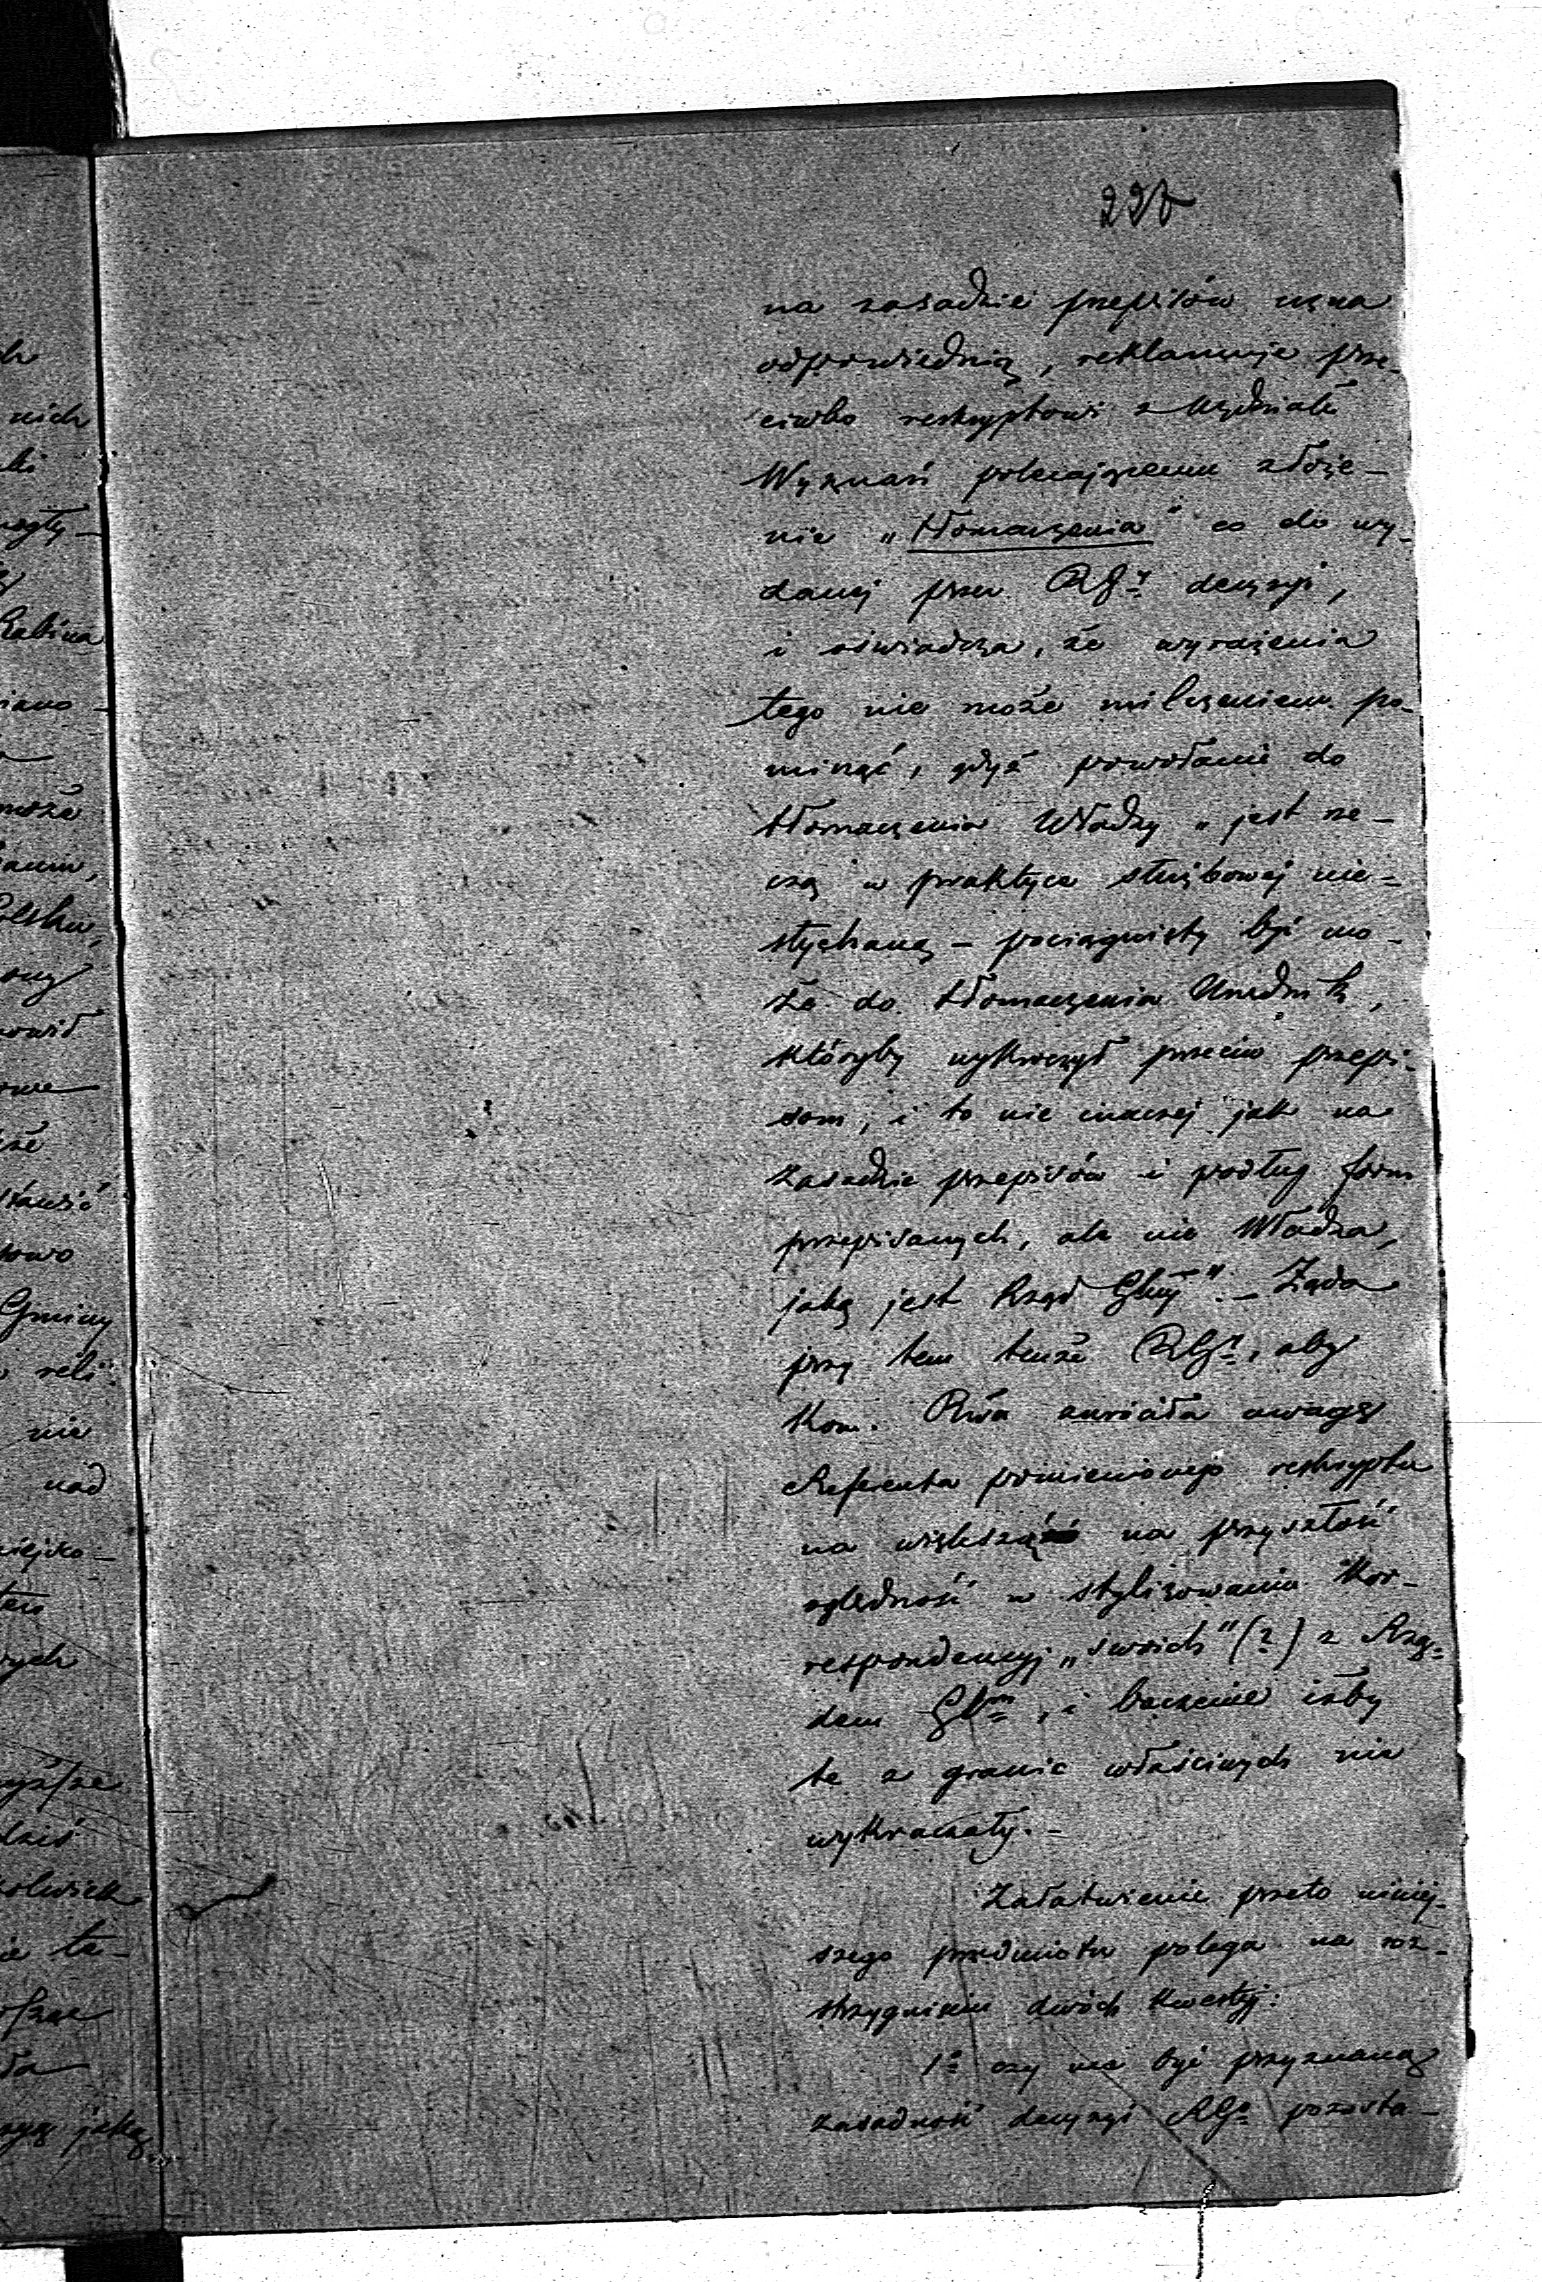 228
na zasadzie przepisów uzna
odpowiednią, reklamuje prze-
ciwko reskryptowi z Wydziału
Wyznań polecającemu złoże-
nie „tłomaczenia" co do wy-
danej przez RGr decyzyi,
i oświadcza, że wyrażenia
tego nie może milczeniem po-
minąć, gdyż powołanie do
tłomaczenia Władzy „jest rze-
czą w praktyce służbowej nie-
słychaną – pociągnięty być mo-
że do tłomaczenia Urzędnik,
któryby wykroczył przeciw przepi-
som, i to nie inaczej jak na
zasadzie przepisów i podług form
przepisanych, ale nie Władza,
jaką jest Rząd Gbny". – Żąda
przy tem tenże RGr, aby
Kom. Rwa zwróciła uwagę
Referenta pomienionego reskryptu
na większą na przyszłość
oględność w stylizowaniu kor-
respondencyj „swoich" (?) z Rzą-
dem Gbm, i baczenie iżby
te z granic właściwych nie
wykraczały. –
Załatwienie przeto niniej-
szego przedmiotu polega na roz-
strzygnieniu dwóch kwestyj:
1o czy ma być przyznaną
zasadność decyzyi RGo pozosta-